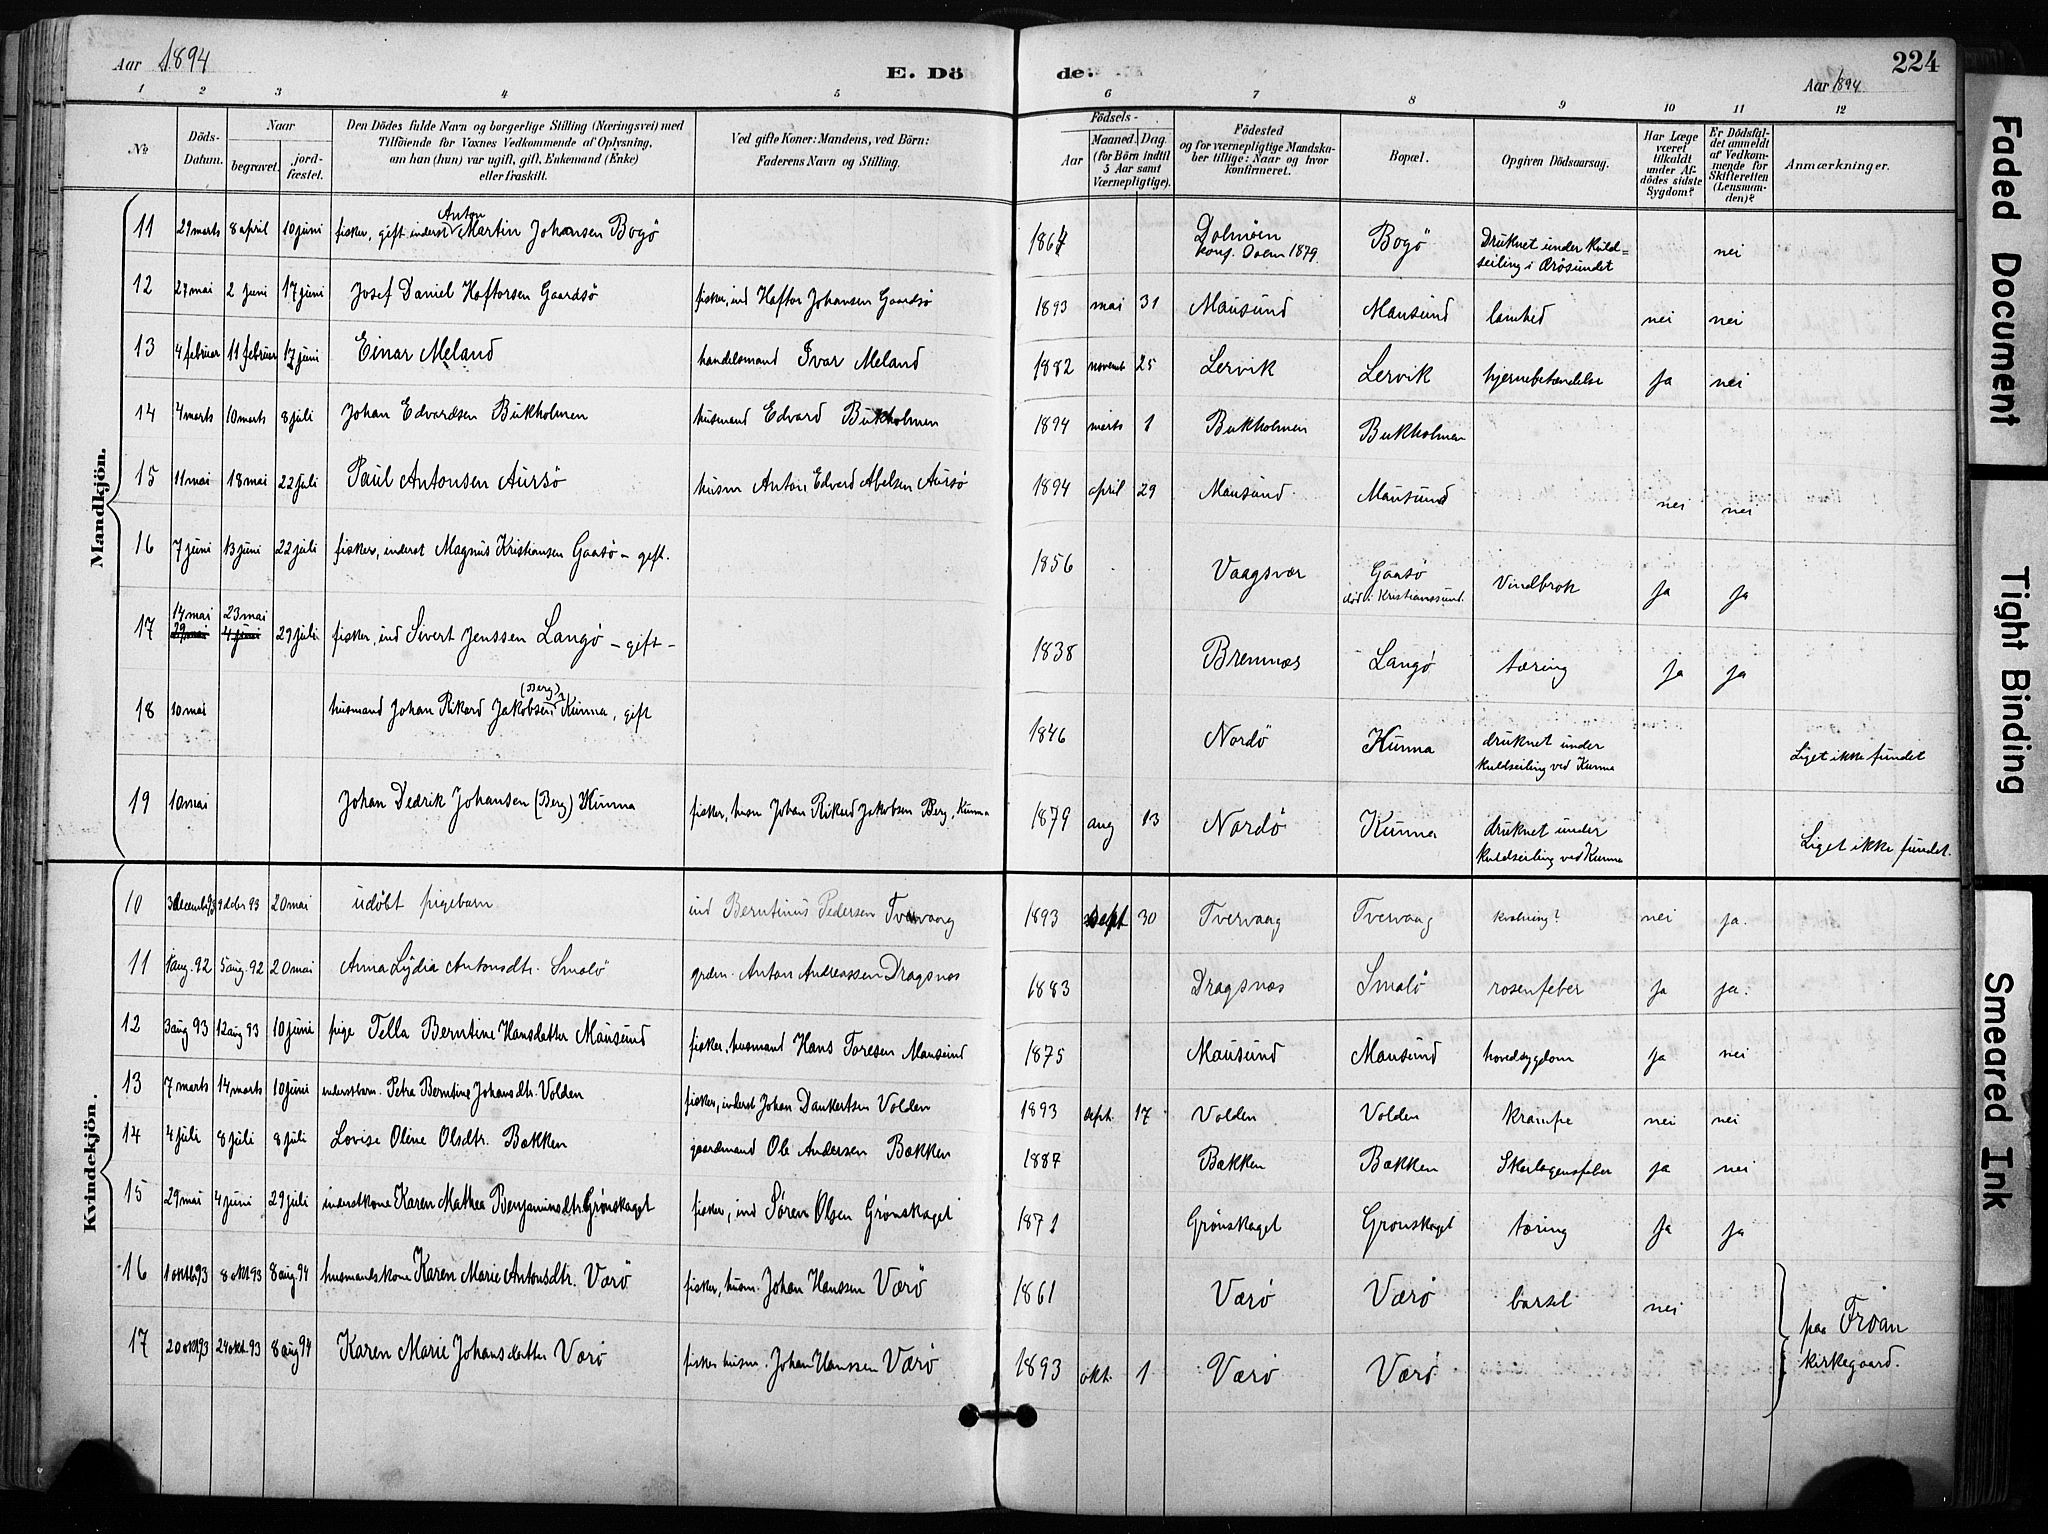 Aar 1894
E. Döde.
224
Aar 1894
1 2 3 4 5 6 7 8 9 10 11 12
№
Döds-Datum.
Naar
begravet.
jord-fæstet.
Den Dödes fulde Navn og borgerlige Stilling (Næringsvei) med
Tilföiende for Voxnes Vedkommende af Oplysning,
om han (hun) var ugift, gift, Enkemand (Enke)
eller fraskilt.
Ved gifte Koner: Mandens, ved Börn:
Faderens Navn og Stilling.
Födsels-
Aar
Maaned. Dag.
(for Börn indtil
5 Aar samt
Værnepligtige).
Födested
og for værnepligtige Mandskaber tillige: Naar og hvor
konfirmeret.
Bopæl.
Opgiven Dödsaarsag.
Har Læge været tilkaldt under Afdödes sidste Sygdom?
Er Dödsfaldet anmeldt af Vedkommende for Skifteretten (Lensmanden)?
Anmærkninger.
Mandkjön.
11 29 marts 8 april 10 juni fisker, gift inderst Anton Martin Johansen Bogö 1864 Dolmöen konf. Dolm 1879. Bogö Druknet under kuldseiling i nei
12 27 mai 2 juni 17 juni Josef Daniel Haftorsen Gaardsö fisker, ind Haftor Johansen Gaardsö 1893 mai 31 Mausund Mausund lamhed nei nei
13 4 februar 11 februar 17 juni Einar Meland handelsmand Ivar Meland 1882 novemb 25 Lervik Lervik hjernebetændelse ja nei
14 4 marts 10 marts 8 juli Johan Edvardsen Bukholmen husmand Edvard Bukholmen 1894 marts 1 Bukholmen Bukholmen
15 11 mai 18 mai 22 juli Paul Antonsen Aursö husm Anton Edvard Abelsen Aursö 1894 april 29 Mausund Mausund nei nei
16 7 juni 13 juni 22 juli fisker, inderst Magnus Kristiansen Gaasö – gift. 1856 Vaagsvær Gaasö död i Kristianssund. Vindbrok ja ja
17 14 mai 29 mai 23 mai 4 juni 29 juli fisker, ind Sivert Jenssen Langö – gift – 1838 Bremnæs Langö tæring ja ja
18 10 mai husmand Johan Rikard Jakobsen (Berg) Kunna, gift 1846 Nordö Kunna druknet under kuldseiling ved Kunna Liget ikke fundet
19 10 mai Johan Dedrik Johansen (Berg) Kunna fisker, husm Johan Rikard Jakobsen Berg, Kunna 1879 aug 13 Nordö Kunna druknet under kuldseiling ved Kunna Liget ikke fundet.
Kvindekjön.
10 3 decemb 93 20 mai udöbt pigebarn ind Berntinus Pedersen Tvervaag 1893 sept 30 Tvervaag Tvervaag kvælning? nei ja.
11 1 aug. 92 5 aug. 92 20 mai Anna Lydia Antonsdtr. Smalö grdm. Anton Andreassen Dragsnæs 1883 Dragsnæs Smalö rosenfeber ja ja.
12 3 aug 93 12 aug 93 10 juni pige Tella Berntine Hansdatter Mausund fisker, husmand Hans Toresen Mausund 1875 Mausund Mausund hovedsygdom ja nei
13 7 marts 14 marts 10 juni inderstbarn. Petra Berntine Johansdtr. Volden fisker, inderst Johan Dankertsen Volden 1893 sept. 17 Volden Volden krampe nei nei
14 4 juli 8 juli 8 juli Lovise Oline Olsdtr. Bakken gaardmand Ole Andersen Bakken 1887 Bakken Bakken Skarlagensfeber ja nei
15 29 mai 4 juni 29 juli inderstkone Karen Mathea Benjaminsdtr Grönskaget fisker, ind Sören Olsen Grönskaget 1871 Grönskaget Grönskaget tæring ja ja
16 1 oktb93 8 okt93 8 aug. 94 husmandskone Karen Marie Antonsdtr. Værö fisker, husm. Johan Hanssen Værö 1861 Værö Værö barsel nei
17 20 okt93 24 okt. 93 8 aug 94 Karen Marie Johansdatter Værö fisker husm. Johan Hanssen Værö 1893 okt. 1 Værö Værö
paa Fröan
kirkegaard.
Faded Document
Tight Binding
Smeared Ink